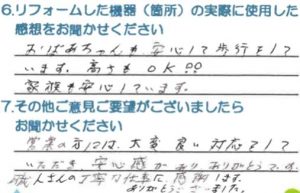 6.リフォームした機器（箇所）の実際に使用した
感想をお聞かせください
おばあちゃんも安心して歩行をして
います。高さもOK!!
家族も安心しています。
7.その他ご意見ご要望がございましたら
お聞かせください
営業の方には、大変良い対応をして
いただき安心感がありありがとうです。
職人さんの丁寧な仕事に感謝します。
ありがとうございました。